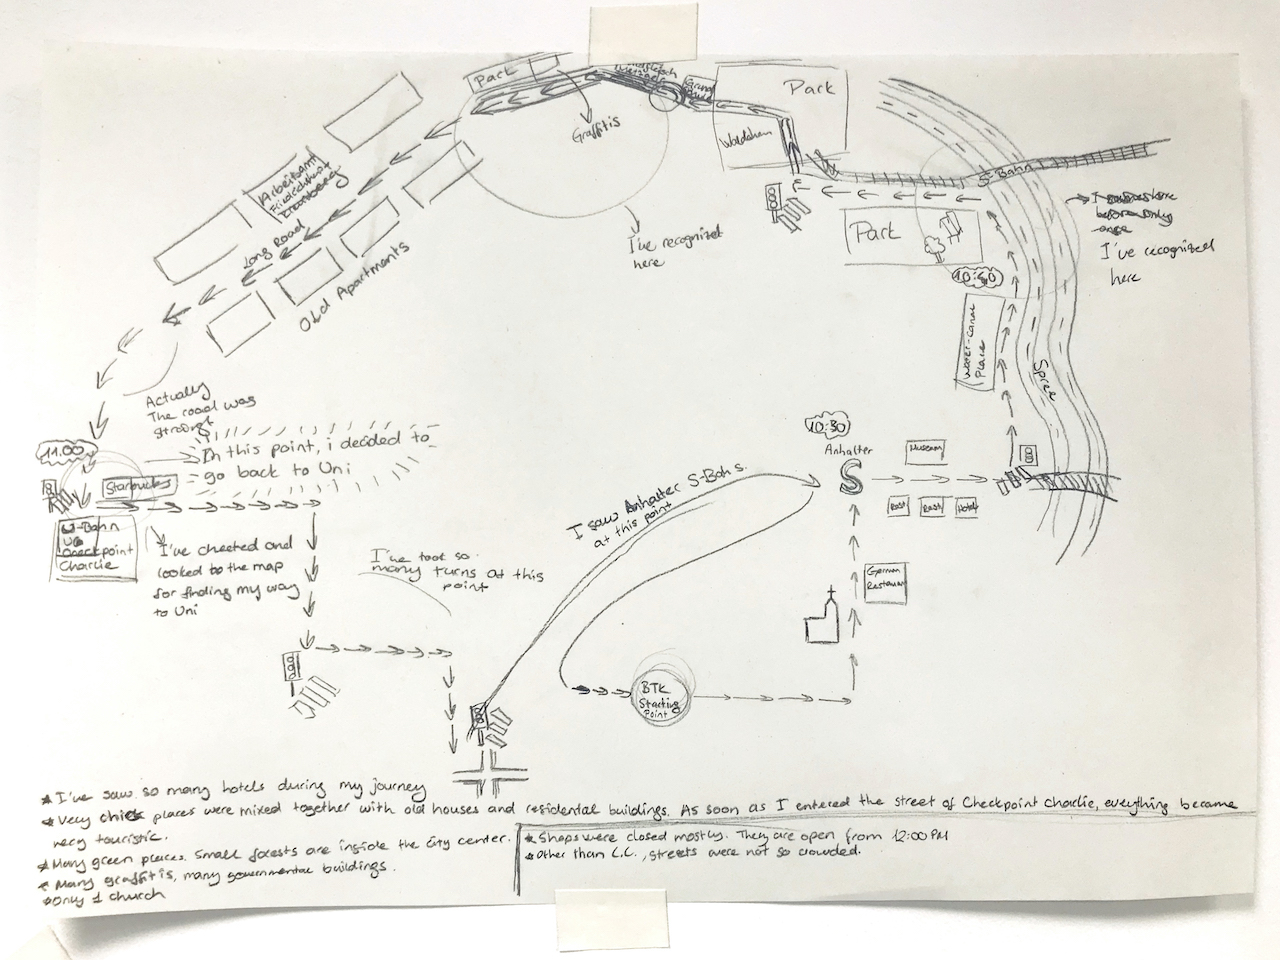 Park
Graffitis
Park
Park
S-Bahn
I've recognized
here
I've recognized
here
10:40
Water-Canal
Place
Spree
Arbeitsamt
Long Road
Old Apartments
Actually
The road was
11.00
Starbucks
In this point, i decided to
go back to Uni
U-Bahn
U6
Checkpoint
Charlie
I've cheeted and
looked to the map
for finding my way
to Uni
I've took so
many turns at this
point
I saw Anhalter S-Bahs.
at this point
10:30
Anhalter
S
Museum
Rest
Rest
Hotel
German
Restaurant
BTK
Starting
Point
* I've saw so many hotels during my journey
* Very chick places were mixed together with old houses and residential buildings. As soon as I entered the street of Checkpoint Charlie, everything became
very touristic.
* Many green places. Small forests are inside the city center.
* Many graffitis, many governmental buildings.
* Only 1 church
* Shops were closed mostly. They are open from 12:00 PM
* Other than C.C., streets were not so crowded.